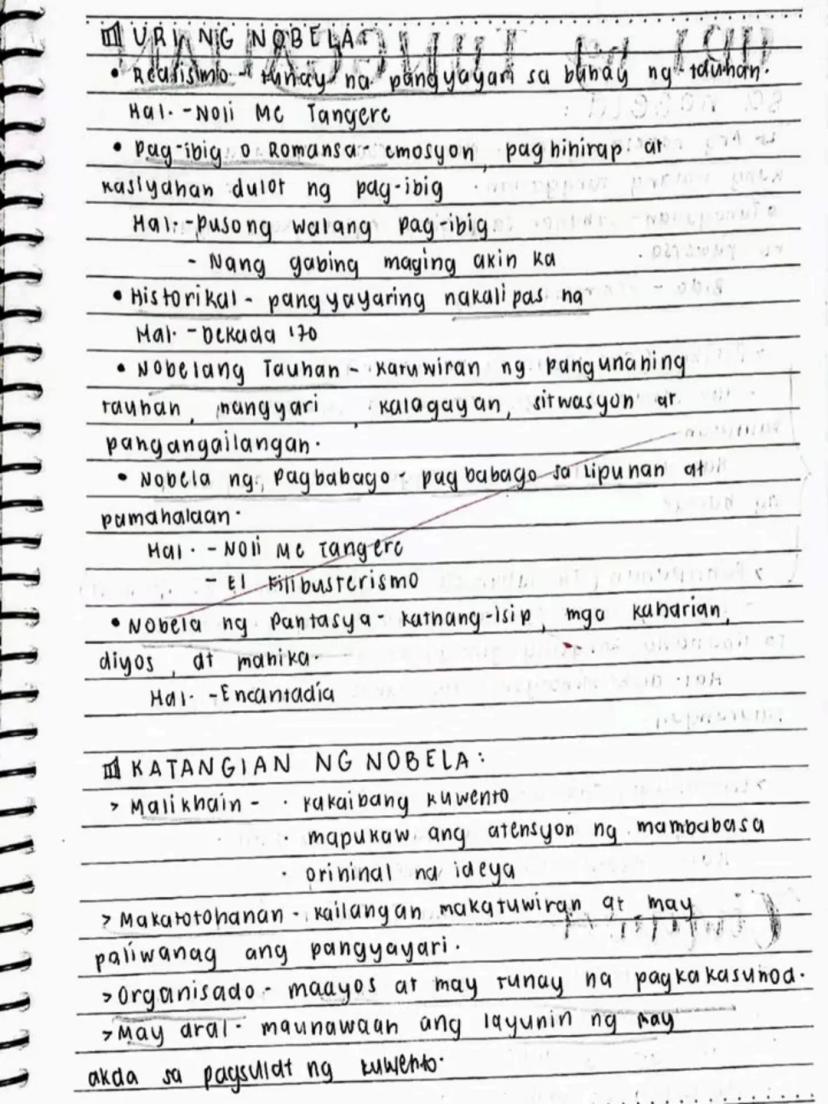 URI NG NOBELA:
• Realismo - tunay na pangyayari sa buhay ng tauhan.
Hal. - Noli Me Tangere
• Pag-ibig o Romansa - emosyon, paghihirap at
kasiyahan dulot ng pag-ibig
Hal. - pusong walang pag-ibig
- Nang gabing maging akin ka
• Historikal - pangyayaring nakalipas na
Hal. - Dekada '70
• Nobelang Tauhan - katuwiran ng pangunahing
tauhan, mangyari, kalagayan, sitwasyon at
pangangailangan.
• Nobela ng Pagbabago - pagbabago sa lipunan at
pamahalaan.
Hal. - Noli Me Tangere
- El Filibusterismo
• Nobela ng Pantasya - kathang-isip, mga kaharian,
diyos, at mahika.
Hal. - Encantadia
KATANGIAN NG NOBELA:
> Malikhain - • kakaibang kuwento
• mapukaw ang atensyon ng mambabasa
• orininal na ideya
> Makatotohanan - kailangan makatuwiran at may
paliwanag ang pangyayari.
> Organisado - maayos at may tunay na pagkakasunod.
> May aral - maunawaan ang layunin ng may
akda sa pagsulat ng kuwento.